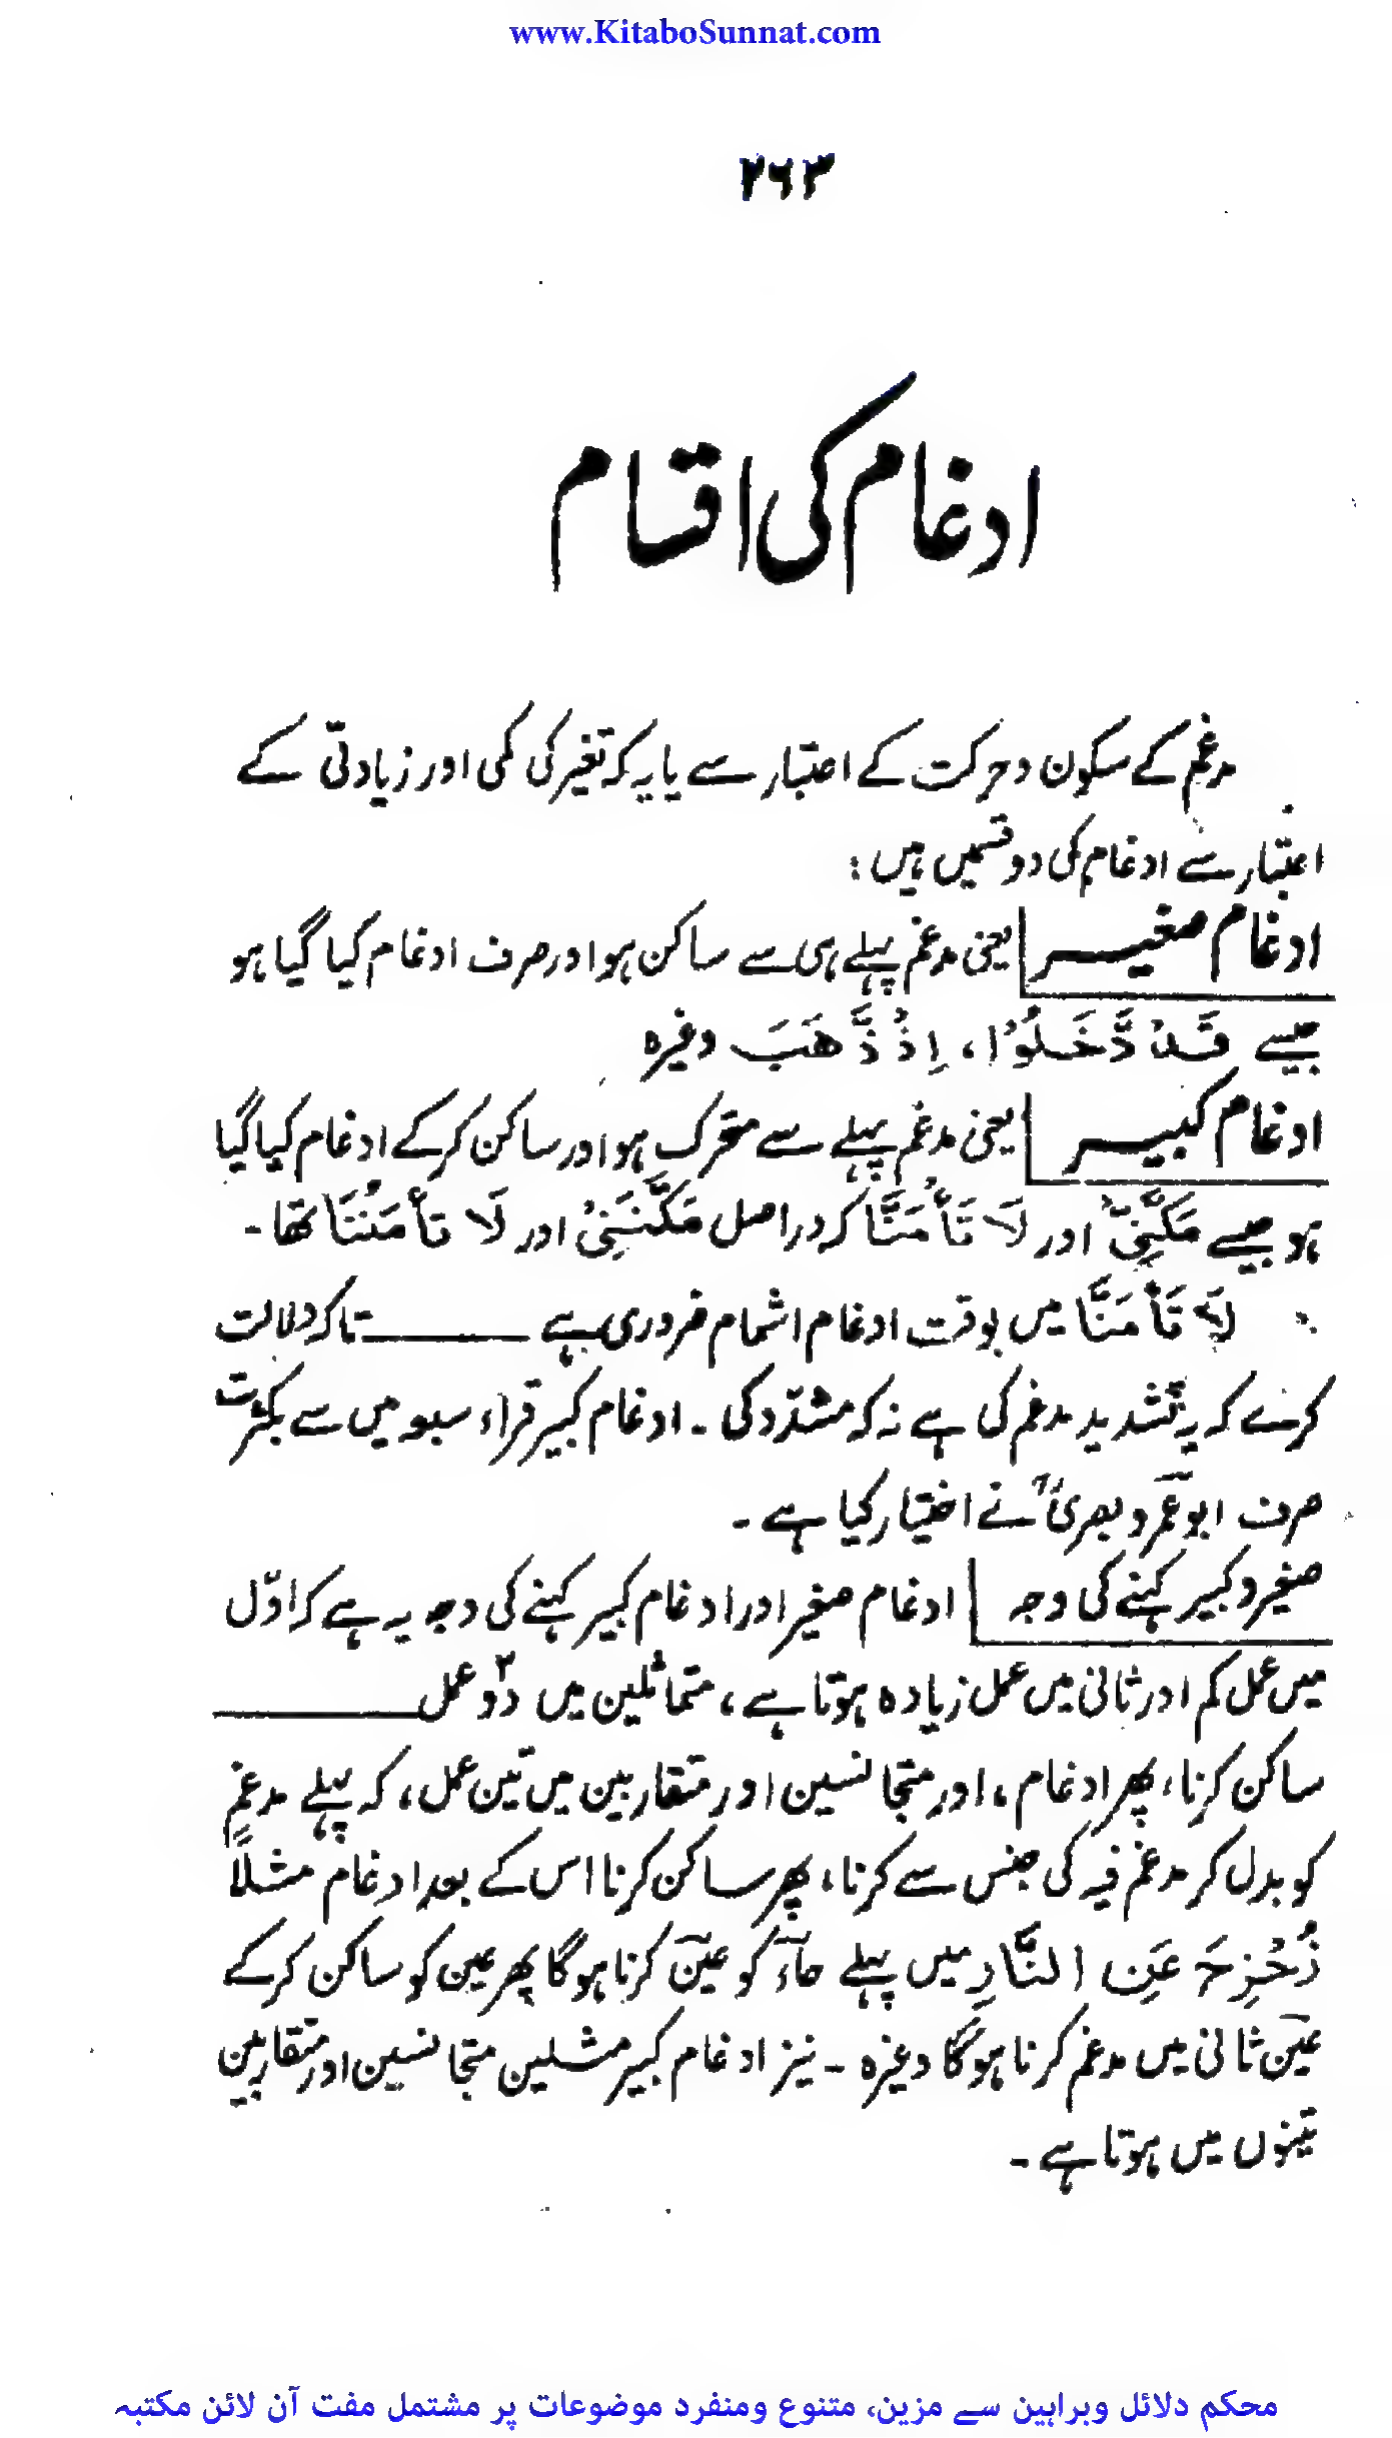 www.KitaboSunnat.com
۲۶۳
ادغام کی اقسام
مدغم کے سکون و حرکت کے اعتبار سے یا یہ کہ تغیر کی کمی اور زیادتی کے
اعتبار سے ادغام کی دو قسمیں ہیں :
ادغام صغیر یعنی مدغم پہلے ہی سے ساکن ہو اور صرف ادغام کیا گیا ہو
جیسے قَدْ دَّخَلُوْا، اِذْ ذَّهَبَ وغیرہ
ادغام کبیر یعنی مدغم پہلے سے متحرک ہو اور ساکن کر کے ادغام کیا گیا
ہو جیسے مَكَّنِّیْ اور لَا تَأْمَنَّا کہ در اصل مَكَّنَنِیْ اور لَا تَأْمَنُنَا تھا ۔
لَا تَأْمَنَّا میں بوقت ادغام اشمام ضروری ہے ـــــــــ تاکہ دلالت
کرے کہ یہ تشدید مدغم کی ہے نہ کہ مشدّد کی ۔ ادغام کبیر قراء سبعہ میں سے بکثرت
صرف ابو عمرو بصریؒ نے اختیار کیا ہے ۔
صغیر و کبیر کہنے کی وجہ ادغام صغیر اور ادغام کبیر کہنے کی وجہ یہ ہے کہ اوّل
میں عمل کم اور ثانی میں عمل زیادہ ہوتا ہے، متماثلین میں دو۲ عمل ـــــــــ
ساکن کرنا، پھر ادغام، اور متجانسین اور متقاربین میں تین عمل، کہ پہلے مدغم
کو بدل کر مدغم فیہ کی جنس سے کرنا، پھر ساکن کرنا اس کے بعد ادغام مثلاً
زُحْزِحَ عَنِ النَّارِ میں پہلے حآء کو عین کرنا ہوگا پھر عین کو ساکن کر کے
عین ثانی میں مدغم کرنا ہوگا وغیرہ ۔ نیز ادغام کبیر مثلین متجانسین اور متقاربین
تینوں میں ہوتا ہے ۔
محکم دلائل وبراہین سے مزین، متنوع ومنفرد موضوعات پر مشتمل مفت آن لائن مکتبہ